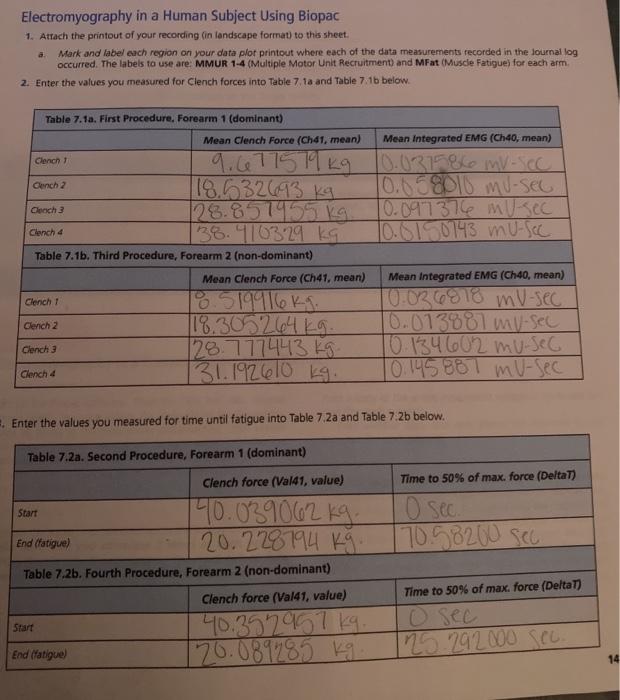 Electromyography in a Human Subject Using Biopac
1. Attach the printout of your recording (in landscape format) to this sheet.
a. Mark and label each region on your data plot printout where each of the data measurements recorded in the Journal log
occurred. The labels to use are: MMUR 1-4 (Multiple Motor Unit Recruitment) and MFat (Muscle Fatigue) for each arm.
2. Enter the values you measured for Clench forces into Table 7.1a and Table 7.1b below.
Table 7.1a. First Procedure, Forearm 1 (dominant)
Mean Clench Force (Ch41, mean) Mean Integrated EMG (Ch40, mean)
Clench 1 9.677579 kg 0.037586 mV-sec
Clench 2 18.532693 kg 0.058010 mV-sec
Clench 3 28.857455 kg. 0.097376 mV-sec
Clench 4 38.410329 kg 0.0150743 mV-sec
Table 7.1b. Third Procedure, Forearm 2 (non-dominant)
Mean Clench Force (Ch41, mean) Mean Integrated EMG (Ch40, mean)
Clench 1 8.519916 kg. 0.036878 mV-sec
Clench 2 18.305264 kg. 0.073887 mV-sec
Clench 3 28.777443 kg. 0.134602 mV-sec
Clench 4 31.192610 kg. 0.145887 mV-sec
. Enter the values you measured for time until fatigue into Table 7.2a and Table 7.2b below.
Table 7.2a. Second Procedure, Forearm 1 (dominant)
Clench force (Val41, value) Time to 50% of max. force (DeltaT)
Start 40.039062 kg. 0 sec.
End (fatigue) 20.228794 kg. 70.58200 sec
Table 7.2b. Fourth Procedure, Forearm 2 (non-dominant)
Clench force (Val41, value) Time to 50% of max. force (DeltaT)
Start 40.352957 kg. 0 sec
End (fatigue) 20.089285 kg. 25.292000 sec.
14